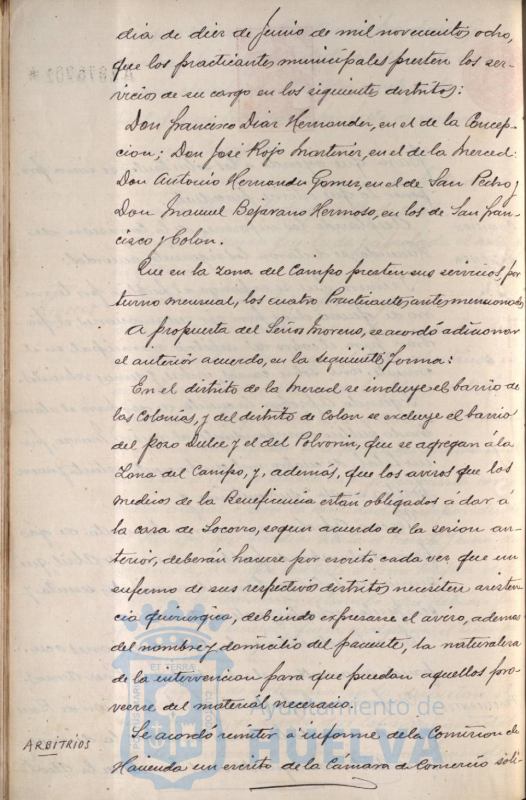 dia de diez de Junio de mil novecientos ocho,
que los practicantes municipales presten los ser-
vicios de su cargo en los siguientes distritos:
Don Francisco Diaz Hernandez, en el de la Concep-
cion; Don José Rojo Martinez, en el de la Merced:
Don Antonio Hernandez Gomez, en el de San Pedro y
Don Manuel Bejarano Hermoso, en los de San Fran-
cisco y Colon.
Que en la zona del Campo presten sus servicios, por
turno mensual, los cuatro Practicantes antes mencionados
A propuesta del Señor Moreno, se acordó adicionar
el anterior acuerdo, en la siguiente forma:
En el distrito de la Merced se incluye el barrio de
las Colonias, y del distrito de Colon se excluye el barrio
del Pozo Dulce y el del Polvorin, que se agregan á la
Zona del Campo, y, además, que los avisos que los
medicos de la Beneficencia están obligados á dar á
la casa de Socorro, segun acuerdo de la sesion an-
terior, deberán hacerse por escrito cada vez que un
enfermo de sus respectivos distritos necesiten asisten-
cia quirurgica, debiendo expresarse el aviso, ademas
del nombre y domicilio del paciente, la naturaleza
de la intervencion para que puedan aquellos pro-
veerse del material necesario.
ARBITRIOS
Se acordó remitir á informe de la Comision de
Hacienda un escrito de la Cámara de Comercio soli-
PORTUS MARIS
ET TERRAE
CUSTODIA
Ayuntamiento de
HUELVA